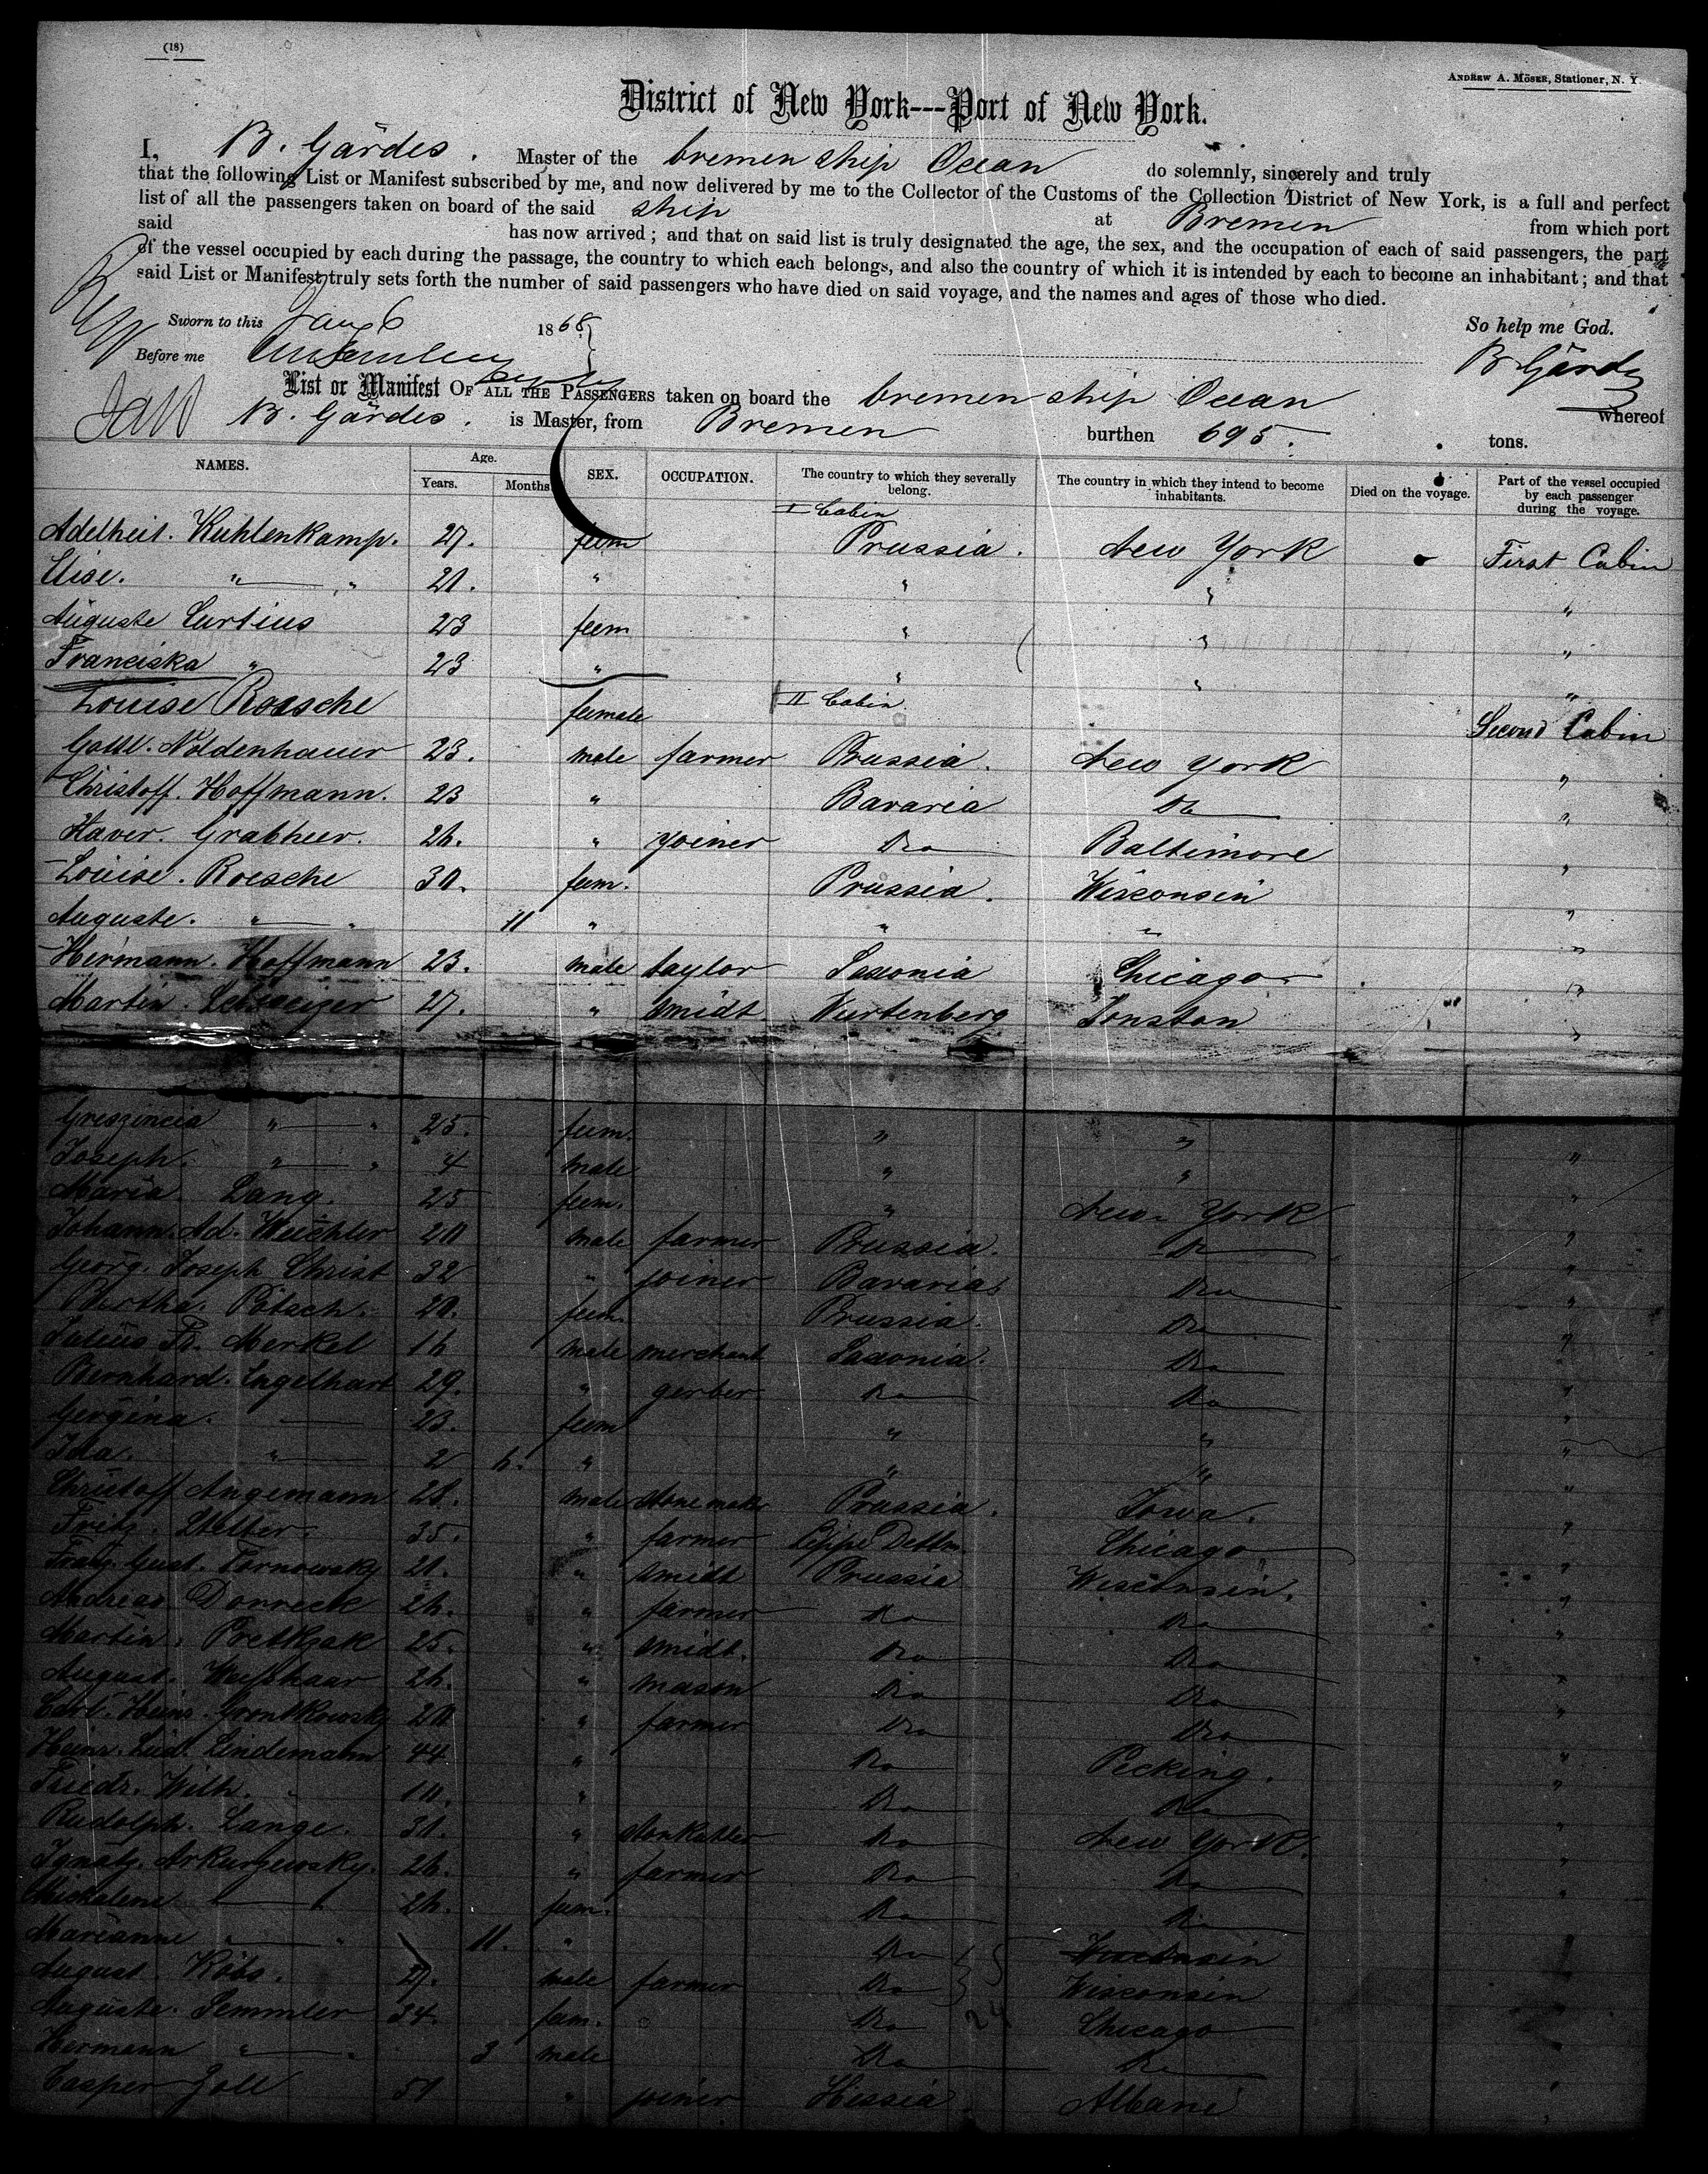 (18)
ANDREW A. MÖSER, Stationer, N. Y.
District of New York---Port of New York.
I, B. Gärdes. Master of the bremen ship Ocean do solemnly, sincerely and truly
that the following List or Manifest subscribed by me, and now delivered by me to the Collector of the Customs of the Collection District of New York, is a full and perfect
list of all the passengers taken on board of the said ship at Bremen from which port
said has now arrived; and that on said list is truly designated the age, the sex, and the occupation of each of said passengers, the part
of the vessel occupied by each during the passage, the country to which each belongs, and also the country of which it is intended by each to become an inhabitant; and that
said List or Manifest truly sets forth the number of said passengers who have died on said voyage, and the names and ages of those who died.
Sworn to this Jany 6 1868 So help me God.
Before me B Gärdes
List or Manifest OF ALL THE PASSENGERS taken on board the bremen ship Ocean whereof
B. Gärdes. is Master, from Bremen burthen 695. tons.
NAMES. Age. Years. Months SEX. OCCUPATION. The country to which they severally belong. The country in which they intend to become inhabitants. Died on the voyage. Part of the vessel occupied by each passenger during the voyage.
I Cabin
Adelheit. Kuhlenkamp. 27. fem Prussia. New York First Cabin
Elise. " " 21. " " " "
Auguste Curtius 23 feem " " "
Franciska " 23 " " " "
Louise Roesche feemale II Cabin Second Cabin
Gottl. Noldenhauer 23. male farmer Prussia. New York "
Christoff. Hoffmann. 23 " Bavaria Do "
Xaver. Grabheer. 26. " joiner Do Baltimore "
Louise. Roesche 30. fem. Prussia. Wisconsin "
Auguste. " " 11 " " " "
Hermann. Hoffmann 23. male taylor Saxonia Chicago "
Martin. Schweizer 27. " smidt Wurtenberg Jonston "
Greszincia " " 25. feem. " " "
Joseph. " " 4 male " " "
Maria Lang. 25 feem. " New York "
Johann. Ad. Weichler 20 male farmer Prussia. Do "
Georg. Joseph Christ 32 " joiner Bavaria Do "
Bertha. Pötsch. 20. feem. Prussia. Do "
Julius Fr. Merkel 16 male merchant Saxonia. Do "
Bernhard. Engelhart 29. " gerber Do Do "
Gergina. 23. feem " " "
Ida. " 2 6. " " " "
Christoff Angemann 28. male Prussia. Iowa. "
Fritz. Stelber. 35. " farmer Lippe Dettm. Chicago "
Franz. Gust. Tornowsky 21. " smidt Prussia Wisconsin. "
Andreas Donreck 26. " farmer Do Do "
Martin. Pretkzak 25. " smidt. Do Do "
August. Westhaar 26. " mason Do Do "
Carl. Heinr. Grontkowsky 20 " farmer Do Do "
Heinr. Lud. Lindemann 44 " Do Pecking. "
Friedr. Wilh. 10. " Do Do "
Rudolph. Lange. 31. " Do New York. "
Ignatz. Arkurzewsky. 26. " farmer Do Do "
26. fem. Do Do
Marianne " " 11. " Do Wisconsin
August. Köbs. 27. male farmer Do Wisconsin
Auguste. Semmler 34. fem. Do Chicago
24
Hermann " 3 male Do Do "
Casper Zoll 51 " joiner Hessia. Albani "